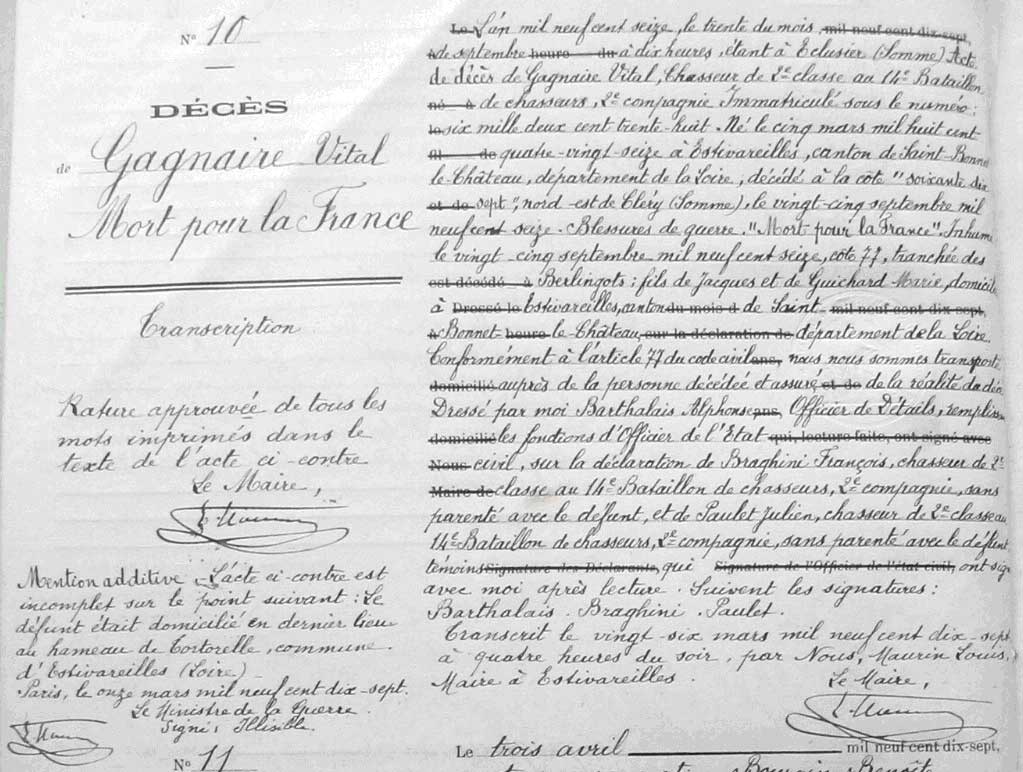 N° 10
DÉCÈS
de Gagnaire Vital
Mort pour la France
Transcription
Rature approuvée de tous les
mots imprimés dans le
texte de l'acte ci-contre
Le Maire,
Mention additive. L'acte ci-contre est
incomplet sur le point suivant : Le
défunt était domicilié en dernier lieu
au hameau de Tortorelle, commune
d'Estivareilles (Loire)
Paris, le onze mars mil neuf cent dix-sept.
Le Ministre de la Guerre
Signé : Illisible.
N° 11
Le L'an mil neuf cent seize, le trente du mois mil neuf cent dix-sept,
à de septembre heure du à dix heures, étant à Eclusier (Somme) Acte
de décès de Gagnaire Vital, Chasseur de 2e classe au 14e Bataillon
né à de chasseurs, 2e compagnie Immatriculé sous le numéro :
le six mille deux cent trente-huit. Né le cinq mars mil huit cent
fil de quatre-vingt-seize à Estivareilles, canton de Saint-Bonnet
le Château, département de la Loire, décédé à la cote "soixante dix
et de sept", nord-est de Cléry (Somme), le vingt-cinq septembre mil
neuf cent seize. Blessures de guerre. "Mort pour la France". Inhumé
le vingt-cinq septembre mil neuf cent seize, cote 77, tranchée des
est décédé à Berlingots ; fils de Jacques et de Guichard Marie, domicilié
à Dressé le Estivareilles, canton du mois d de Saint- mil neuf cent dix sept,
à Bonnet heure le Château, sur la déclaration de département de la Loire.
Conformément à l'article 77 du code civil ans, nous nous sommes transporté
domicilié auprès de la personne décédée et assuré et de de la réalité du décès
Dressé par moi Barthalais Alphonse ans, Officier de Détails, rempliss
domicilié les fonctions d'Officier de l'Etat qui, lecture faite, ont signé avec
Nous civil, sur la déclaration de Braghini François, chasseur de 2e
Maire de classe au 14e Bataillon de chasseurs, 2e compagnie, sans
parenté avec le défunt, et de Paulet Julien, chasseur de 2e classe au
14e Bataillon de chasseurs, 2e compagnie, sans parenté avec le défunt
témoins Signature des Déclarants, qui Signature de l'Officier de l'état civil, ont signé
avec moi après lecture. Suivent les signatures :
Barthalais. Braghini. Paulet.
Transcrit le vingt-six mars mil neuf cent dix-sept
à quatre heures du soir, par Nous, Maurin Louis,
Maire à Estivareilles. Le Maire,
Le trois avril mil neuf cent dix-sept,